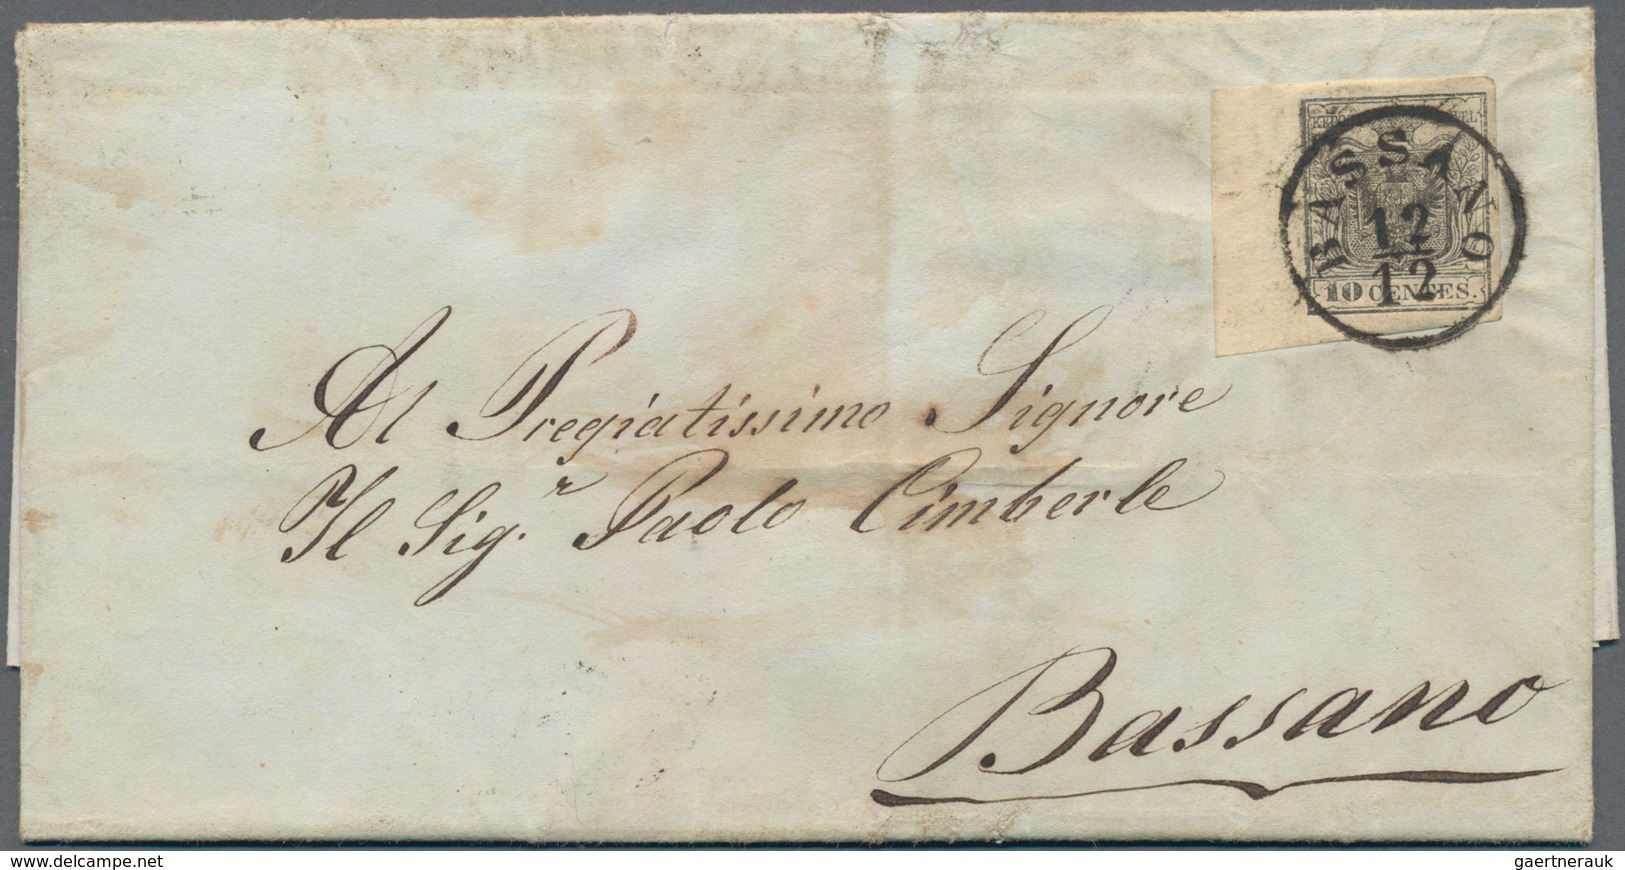 BASSANO
12
12
10 CENTES.
Al Pregiatissimo Signore
Il Sig.r Paolo Cimberle
Bassano
www.delcampe.net
gaertnerauk